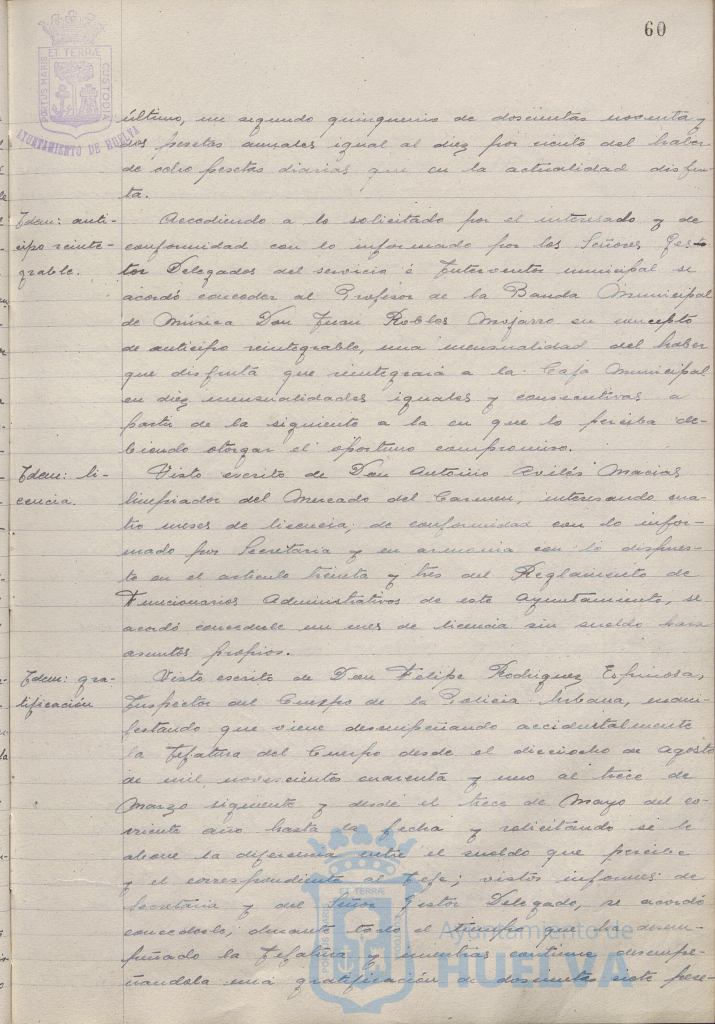 60
PORTUS MARIS ET TERRÆ CUSTODIA
AYUNTAMIENTO DE HUELVA
último, un segundo quinquenio de doscientas noventa y
dos pesetas anuales igual al diez por ciento del haber
de ocho pesetas diarias que en la actualidad disfru-
ta.
Idem: anti-
cipo reinte-
grable.
Accediendo a lo solicitado por el interesado y de
conformidad con lo informado por los Señores Ges-
tor Delegados del servicio é Interventor municipal se
acordó conceder al Profesor de la Banda Municipal
de Música Don Juan Robles Mojarro en concepto
de anticipo reintegrable, una mensualidad del haber
que disfruta que reintegrará a la Caja Municipal
en diez mensualidades iguales y consecutivas a
partir de la siguiente a la en que lo perciba de-
biendo otorgar el oportuno compromiso.
Idem: li-
cencia.
Visto escrito de Don Antonio Avilés Macias
limpiador del Mercado del Carmen, interesando cua-
tro meses de licencia; de conformidad con lo infor-
mado por Secretaria y en armonia con lo dispues-
to en el articulo treinta y tres del Reglamento de
Funcionarios Administrativos de este Ayuntamiento, se
acordó concederle un mes de licencia sin sueldo para
asuntos propios.
Idem: gra-
tificación
Visto escrito de Don Felipe Rodriguez Espinosa,
Inspector del Cuerpo de la Policia Urbana, mani-
festando que viene desempeñando accidentalmente
la Jefatura del Cuerpo desde el dieciocho de Agosto
de mil novecientos cuarenta y uno al trece de
Marzo siguiente y desde el trece de Mayo del co-
rriente año hasta la fecha y solicitando se le
abone la diferencia entre el sueldo que percibe
y el correspondiente al Jefe; vistos informes de
Secretaria y del Señor Gestor Delegado, se acordó
concederle, durante todo el tiempo que ha desem-
peñado la Jefatura y mientras continue desempe-
ñandola una gratificación de doscientas siete pese-
PORTUS MARIS ET TERRÆ CUSTODIA
Ayuntamiento de
HUELVA